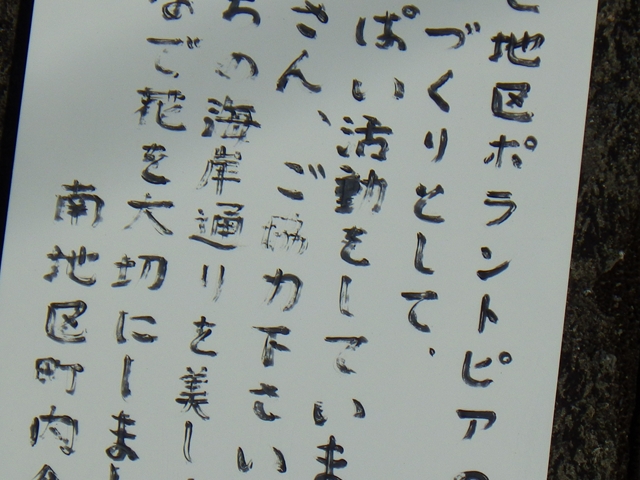 地区ポラントピア
づくりとして、
ぱい活動をしていま
さん、ご協力下さい
の海岸通りを美し
で花を大切にしまし
南地区町内会